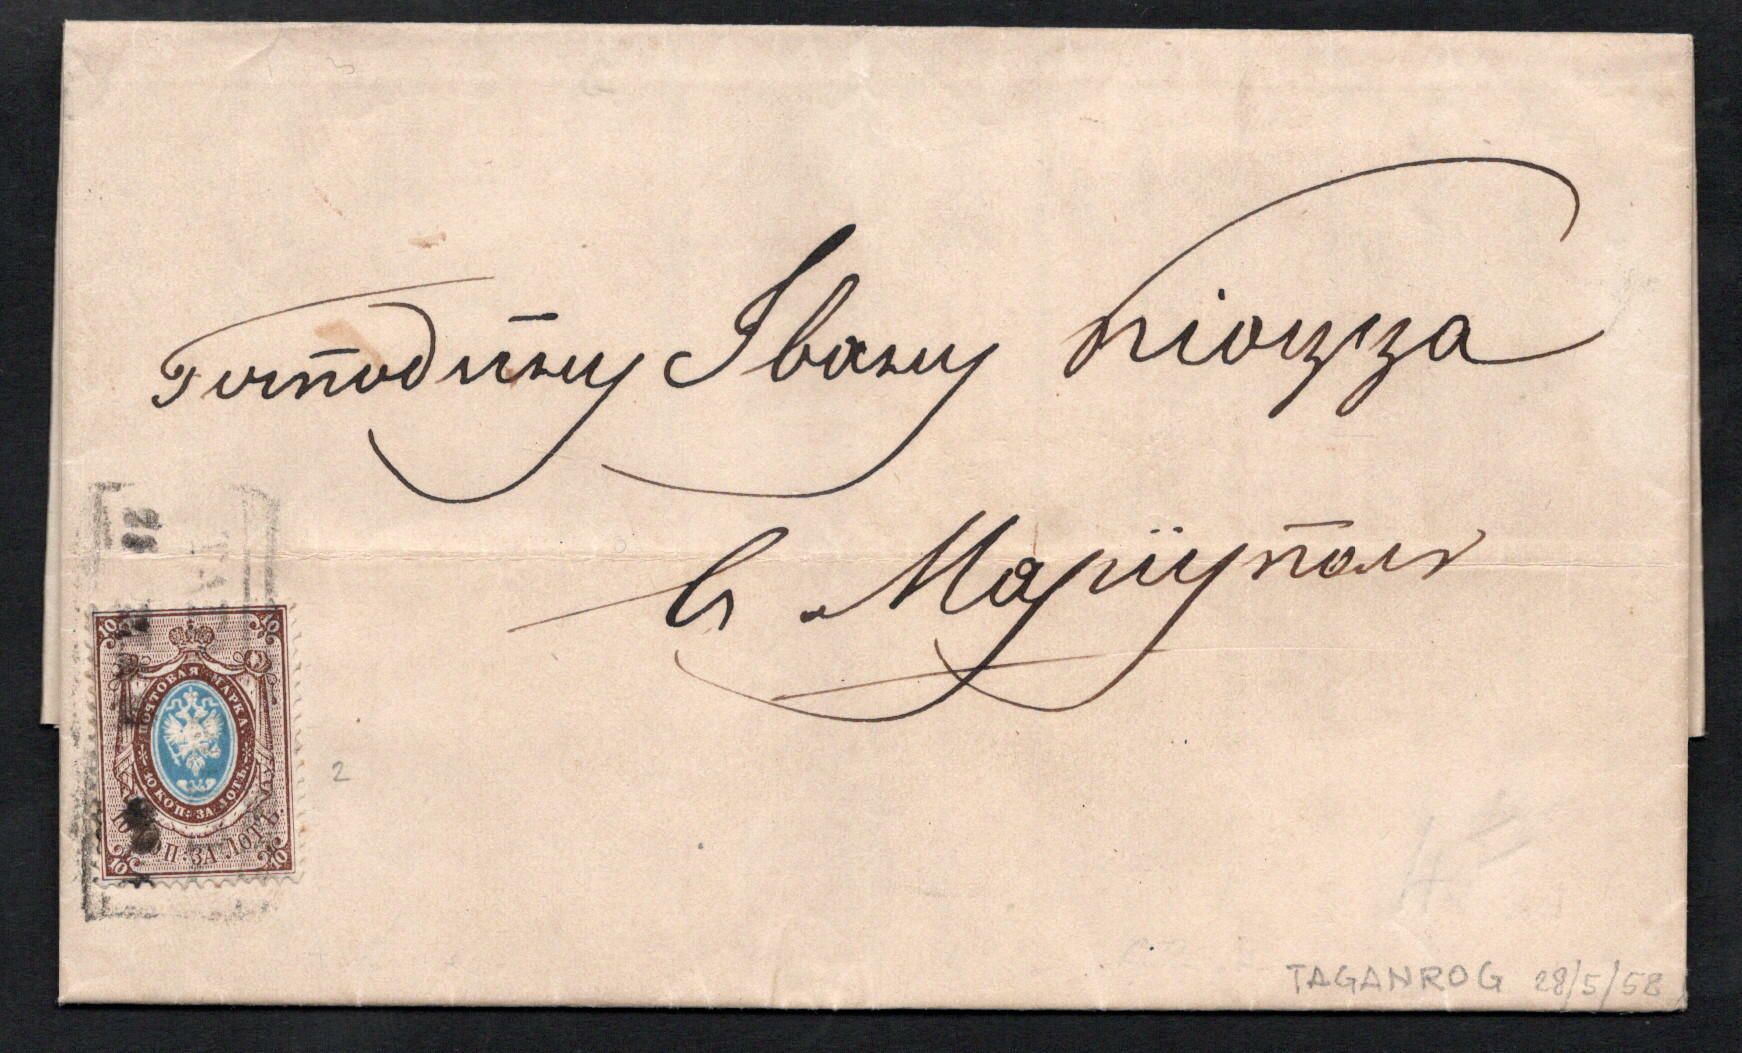 Господину Ивану Кіоцца
въ Маріуполь
28
10 10
ПОЧТОВАЯ МАРКА
10 КОП: ЗА ЛОТЪ.
10 КОП: ЗА ЛОТЪ.
10 10
2
TAGANROG 28/5/58